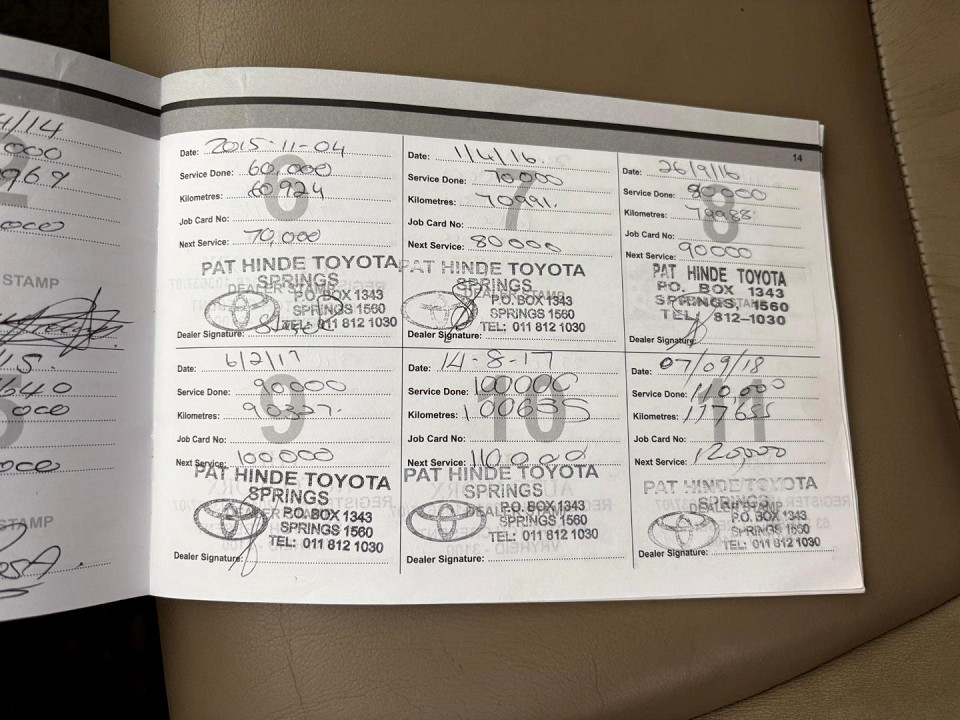 4/14
000
969
000
STAMP
14
Date: 2015-11-04
Service Done: 60,000
Kilometres: 60924
Job Card No:
Next Service: 70,000
6
PAT HINDE TOYOTA
SPRINGS
DEALER STAMP
P.O. BOX 1343
SPRINGS 1560
TEL: 011 812 1030
Dealer Signature:
Date: 1/4/16.
Service Done: 70000
Kilometres: 70991.
Job Card No:
Next Service: 80000
7
PAT HINDE TOYOTA
SPRINGS
DEALER STAMP
P.O. BOX 1343
SPRINGS 1560
TEL: 011 812 1030
Dealer Signature:
Date: 26/9/16
Service Done: 80000
Kilometres: 79988
Job Card No:
Next Service: 90000
8
PAT HINDE TOYOTA
P.O. BOX 1343
SPRINGS, 1560
TEL: 812-1030
Dealer Signature:
15.
640
000
5
000
STAMP
Date: 6/2/17
Service Done: 90000
Kilometres: 90327.
Job Card No:
Next Service: 100000
9
PAT HINDE TOYOTA
SPRINGS
DEALER STAMP
P.O. BOX 1343
SPRINGS 1560
TEL: 011 812 1030
Dealer Signature:
Date: 14-8-17
Service Done: 100000
Kilometres: 100655
Job Card No:
Next Service: 110000
10
PAT HINDE TOYOTA
SPRINGS
DEALER STAMP
P.O. BOX 1343
SPRINGS 1560
TEL: 011 812 1030
Dealer Signature:
Date: 07/09/18
Service Done: 110,000
Kilometres: 117655
Job Card No:
Next Service: 120,000
11
PAT HINDE TOYOTA
SPRINGS
DEALER STAMP
P.O. BOX 1343
SPRINGS 1560
TEL: 011 812 1030
Dealer Signature: